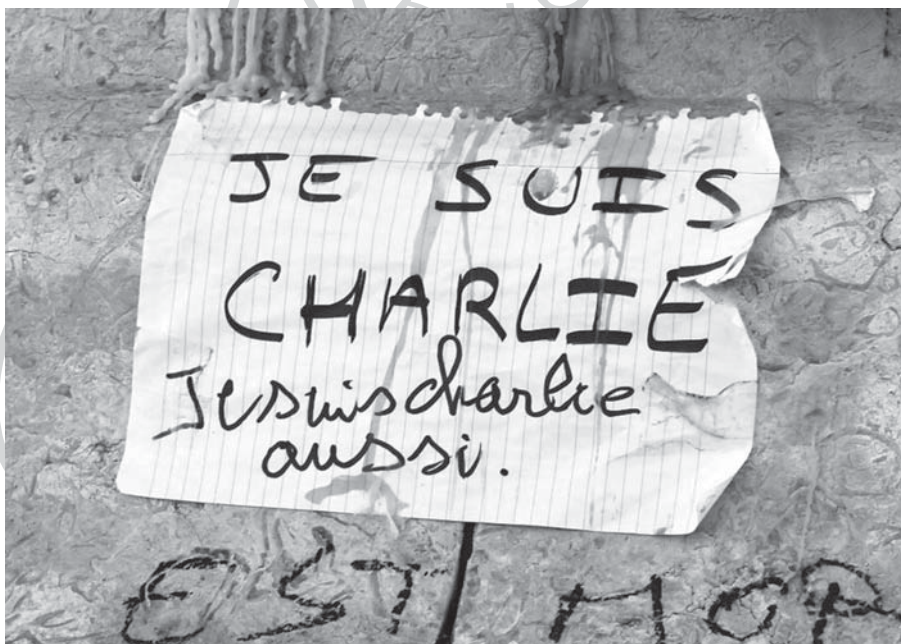 JE SUIS
CHARLIE
Je suis charlie
aussi.